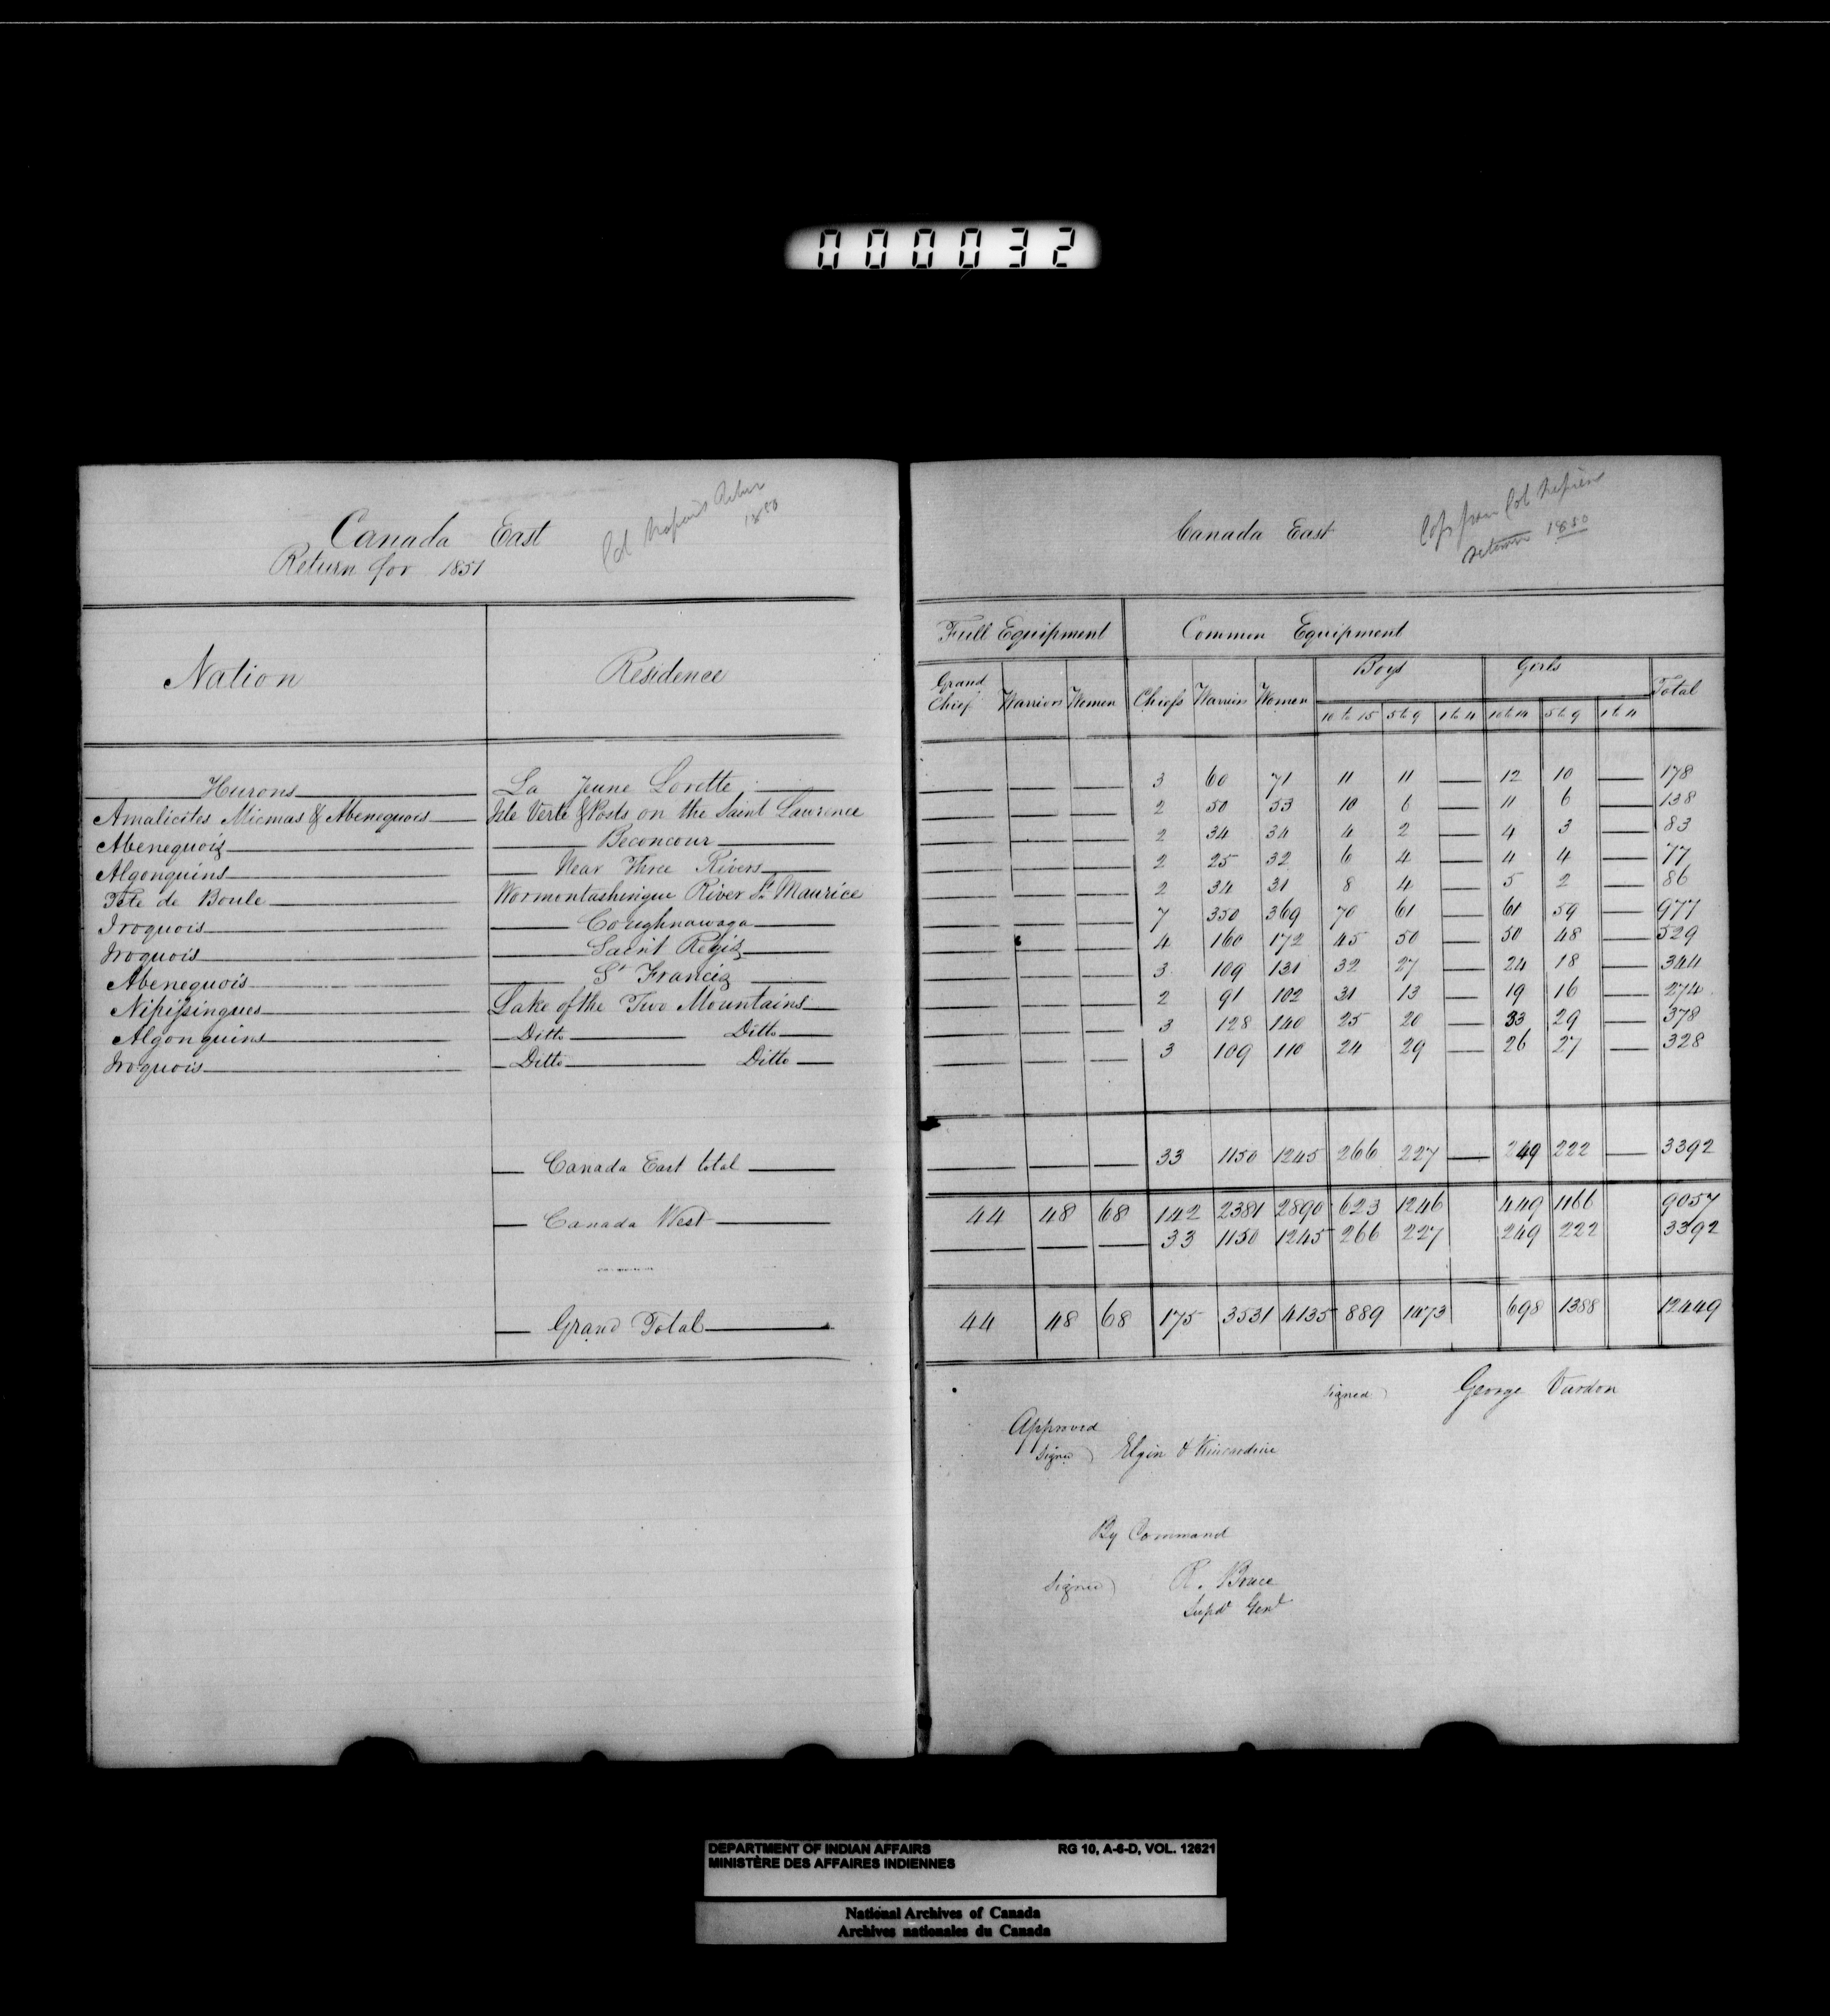 000032
Canada East
Return for 1851
Col Napier's Return
1850
Nation | Residence
Hurons | La Jeune Lorette
Amalicites Micmas & Abenequois | Isle Verte & Posts on the Saint Laurence
Abenequois | Beconcour
Algonquins | Near Three Rivers
Tête de Boule | Wormontashingue River St. Maurice
Iroquois | Coughnawaga
Iroquois | Saint Regis
Abenequois | St Francis
Nipissingues | Lake of the Two Mountains
Algonquins | Ditto Ditto
Iroquois | Ditto Ditto
Canada East total
Canada West
Grand Total
Canada East
Copy from Col Napier's
return 1850
Full Equipment | Common Equipment
Boys | Girls
Grand Chief | Warriors | Women | Chiefs | Warriors | Women | 10 to 15 | 5 to 9 | 1 to 4 | 10 to 14 | 5 to 9 | 1 to 4 | Total
— | — | — | 3 | 60 | 71 | 11 | 11 | — | 12 | 10 | — | 178
— | — | — | 2 | 50 | 53 | 10 | 6 | — | 11 | 6 | — | 138
— | — | — | 2 | 34 | 34 | 4 | 2 | — | 4 | 3 | — | 83
— | — | — | 2 | 25 | 32 | 6 | 4 | — | 4 | 4 | — | 77
— | — | — | 2 | 34 | 31 | 8 | 4 | — | 5 | 2 | — | 86
— | — | — | 7 | 350 | 369 | 70 | 61 | — | 61 | 59 | — | 977
— | — | — | 4 | 160 | 172 | 45 | 50 | — | 50 | 48 | — | 529
— | — | — | 3 | 109 | 131 | 32 | 27 | — | 24 | 18 | — | 344
— | — | — | 2 | 91 | 102 | 31 | 13 | — | 19 | 16 | — | 274
— | — | — | 3 | 128 | 140 | 25 | 20 | — | 33 | 29 | — | 378
— | — | — | 3 | 109 | 110 | 24 | 29 | — | 26 | 27 | — | 328
— | — | — | 33 | 1150 | 1245 | 266 | 227 | — | 249 | 222 | — | 3392
44 | 48 | 68 | 142 | 2381 | 2890 | 623 | 1246 | | 449 | 1166 | | 9057
— | — | — | 33 | 1150 | 1245 | 266 | 227 | | 249 | 222 | | 3392
44 | 48 | 68 | 175 | 3531 | 4135 | 889 | 1473 | | 698 | 1388 | | 12449
Signed) George Vardon
Approved
Signed) Elgin & Kincardine
By Command
Signed) R. Bruce
Supdt Genl
DEPARTMENT OF INDIAN AFFAIRS RG 10, A-6-D, VOL. 12621
MINISTÈRE DES AFFAIRES INDIENNES
National Archives of Canada
Archives nationales du Canada